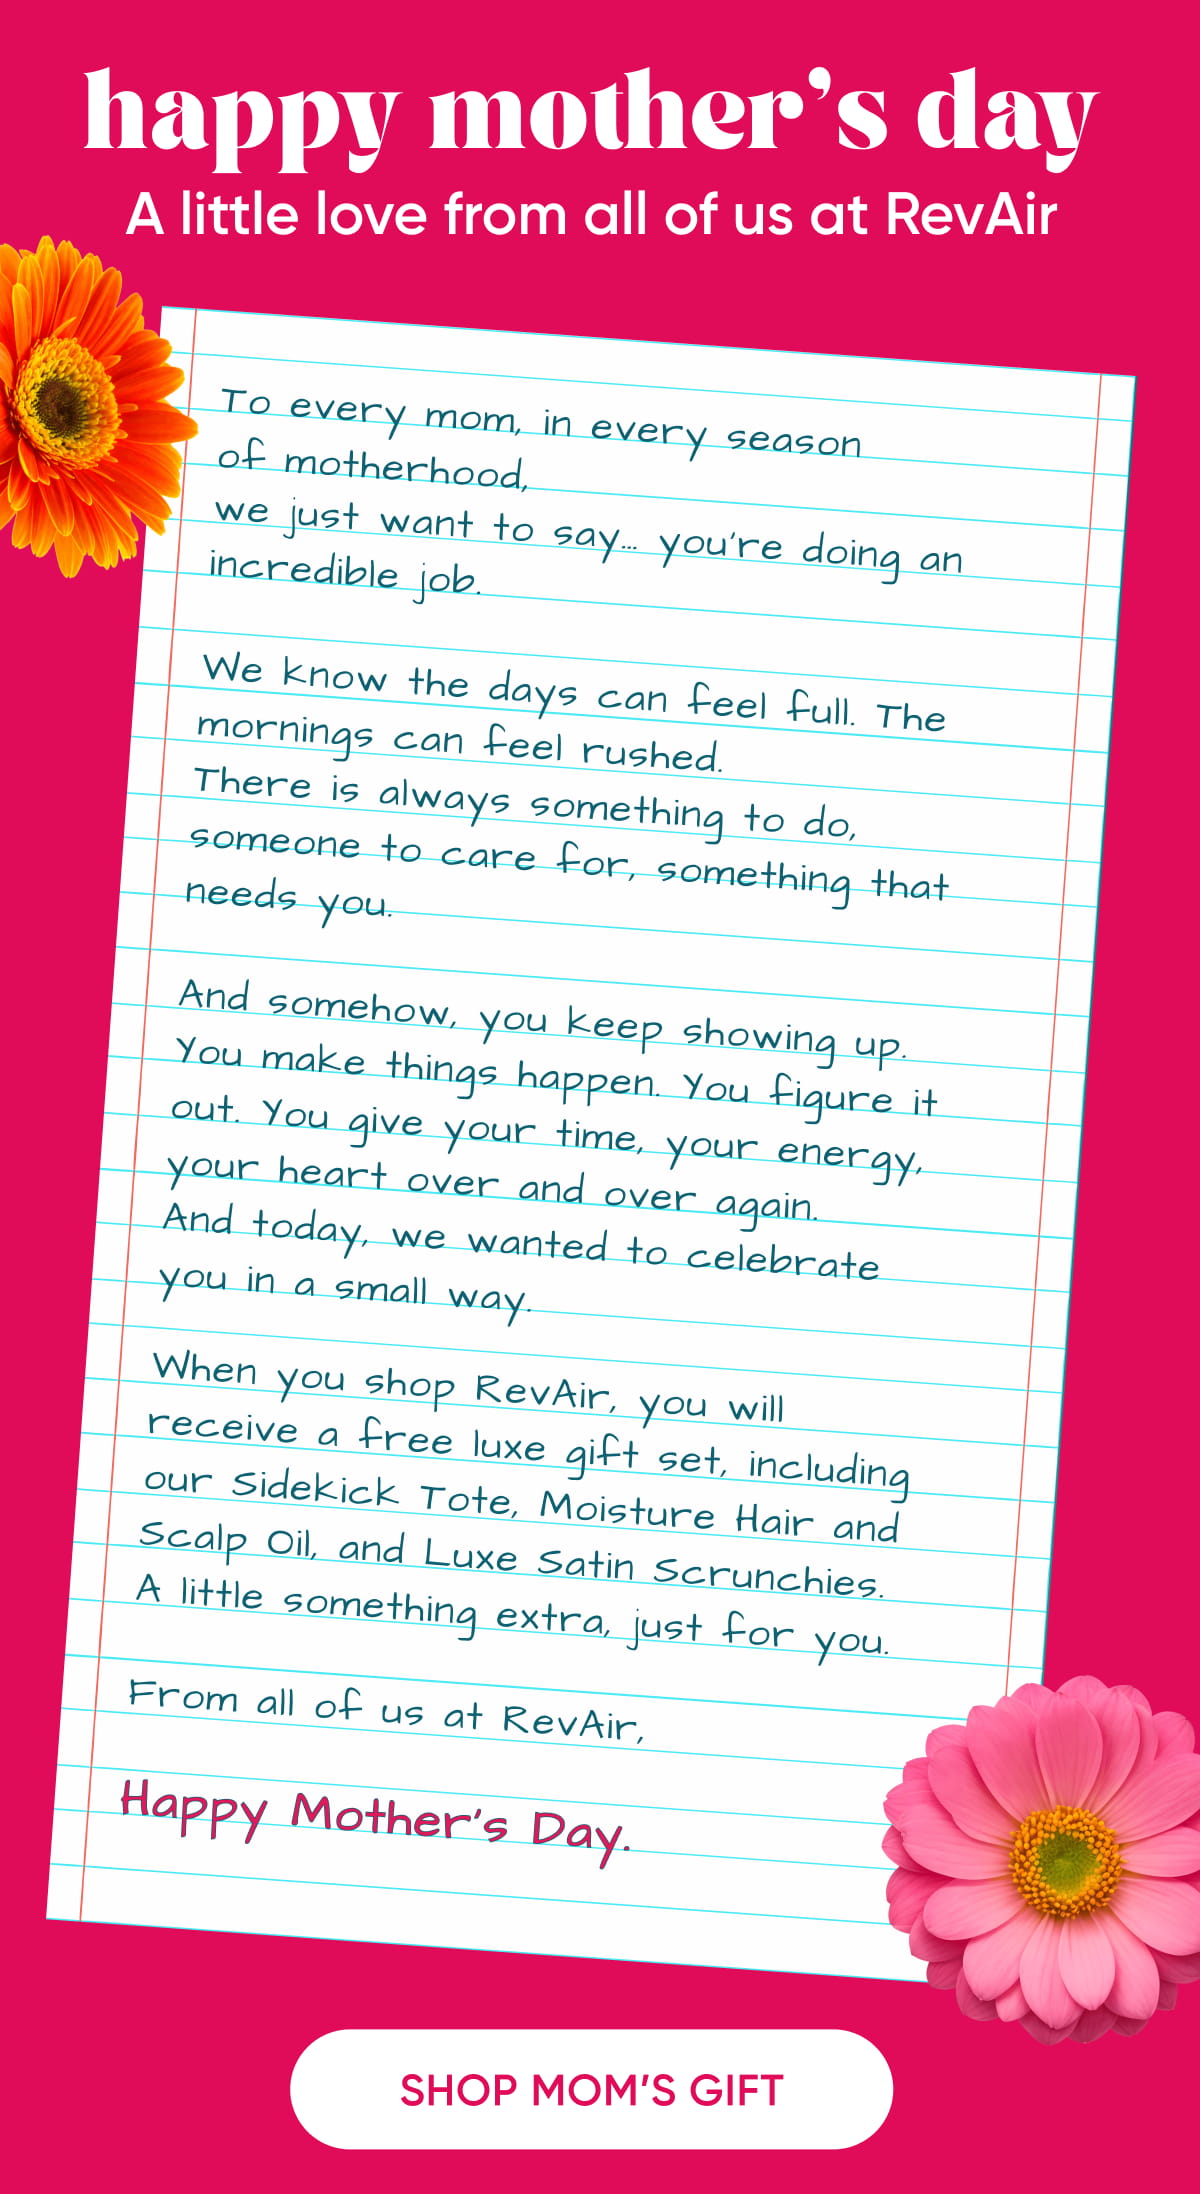 happy mother's day
A little love from all of us at RevAir
To every mom, in every season
of motherhood,
we just want to say... you're doing an
incredible job.
We know the days can feel full. The
mornings can feel rushed.
There is always something to do,
someone to care for, something that
needs you.
And somehow, you keep showing up.
You make things happen. You figure it
out. You give your time, your energy,
your heart over and over again.
And today, we wanted to celebrate
you in a small way.
When you shop RevAir, you will
receive a free luxe gift set, including
our Sidekick Tote, Moisture Hair and
Scalp Oil, and Luxe Satin Scrunchies.
A little something extra, just for you.
From all of us at RevAir,
Happy Mother's Day.
SHOP MOM'S GIFT